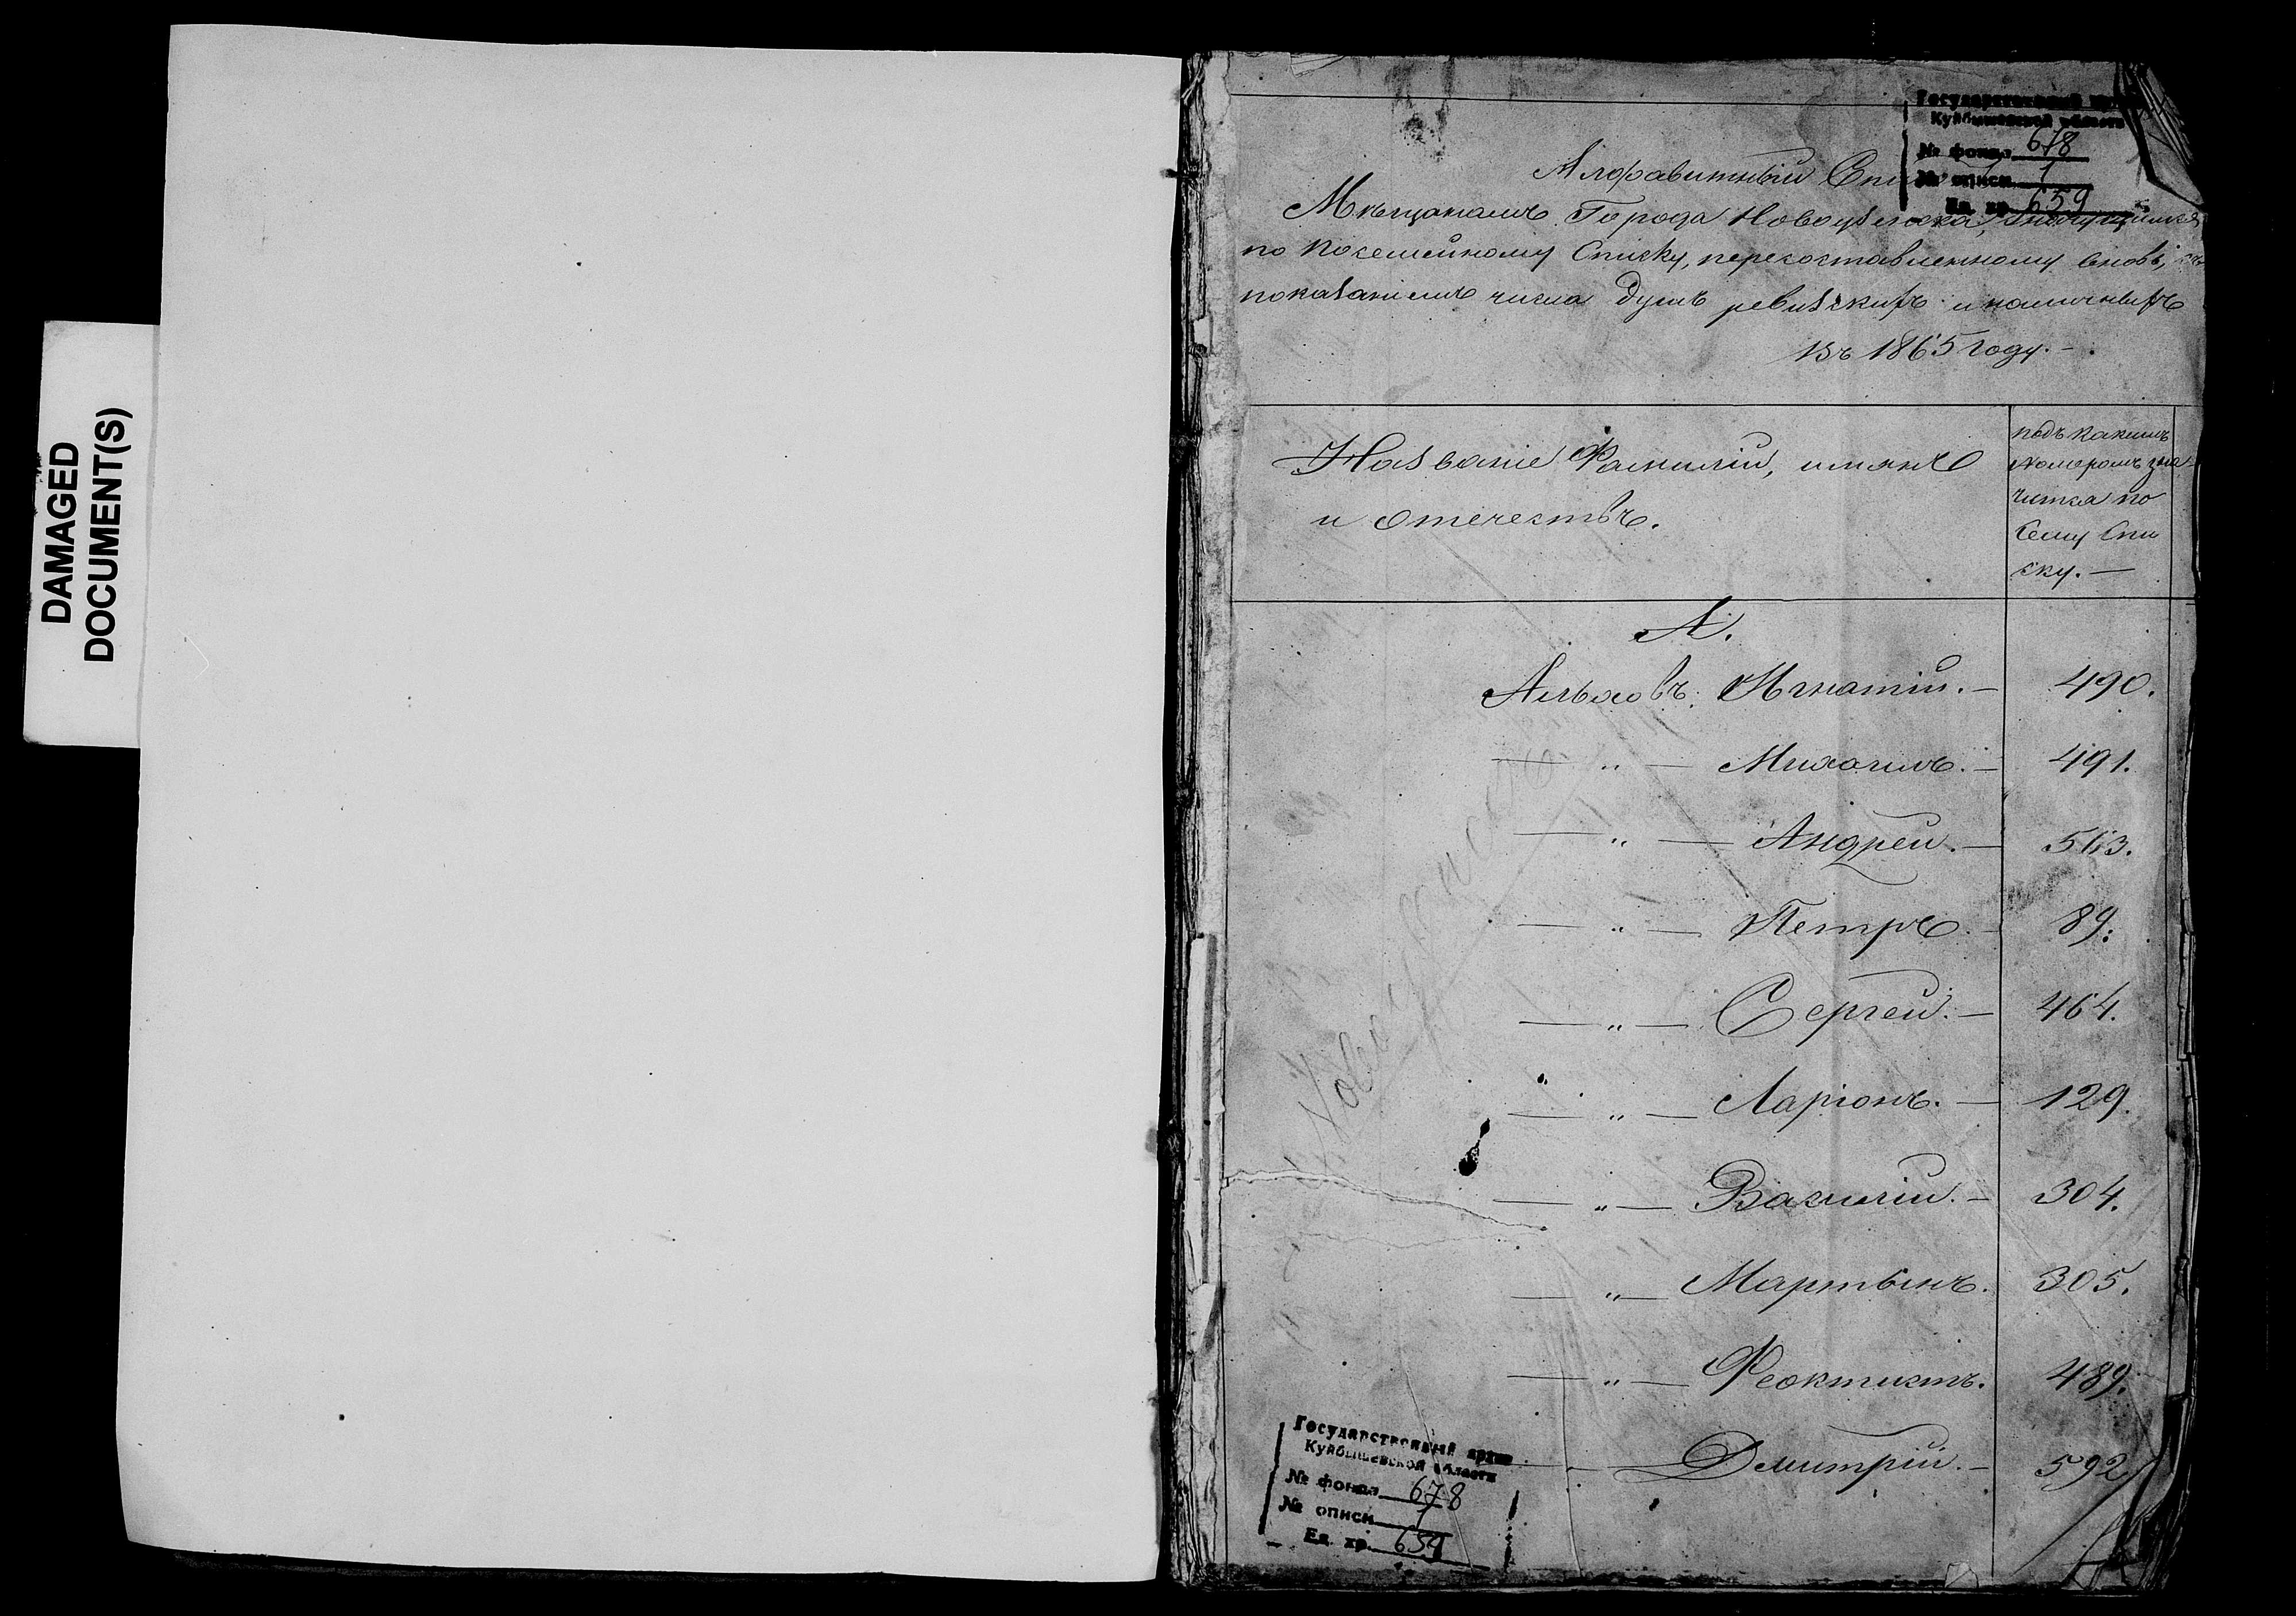 DAMAGED
DOCUMENT(S)
Государственный архив
Куйбышевской области
№ фонда 678
№ описи 1
Ед. хр. 659
Алфавитный
Мѣщанамъ Города Новоузенска,
по посемейному Списку, пересоставленному вновь, съ
показаніемъ числа душъ ревизскихъ и наличныхъ
Въ 1865 году. -
Названіе Фамилій, имянъ
и отечествъ.
подъ какимъ
номеромъ зна-
чится по
сему Спи
ску. —
А.
Альховъ. Игнатій. — 490.
— „ — Михаилъ. — 491.
— „ — Андрей. — 513.
— „ — Петръ. — 89.
— „ — Сергей. — 464.
— „ — Ларіонъ. — 129.
— „ — Василій. — 304.
— „ — Мартынъ. 305.
— „ — Феоктистъ. 489.
— Дмитрій. — 592
Государственный архив
Куйбышевской области
№ фонда 678
№ описи 1
Ед. хр. 659